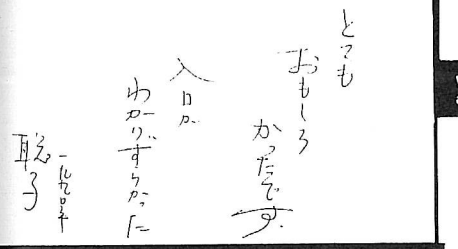 とても
おもしろ
かったです.
入口が
わかりずらかった
聡子